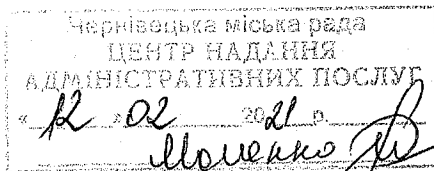 Чернівецька міська рада
ЦЕНТР НАДАННЯ
АДМІНІСТРАТИВНИХ ПОСЛУГ
« 12 » 02 2021 р.